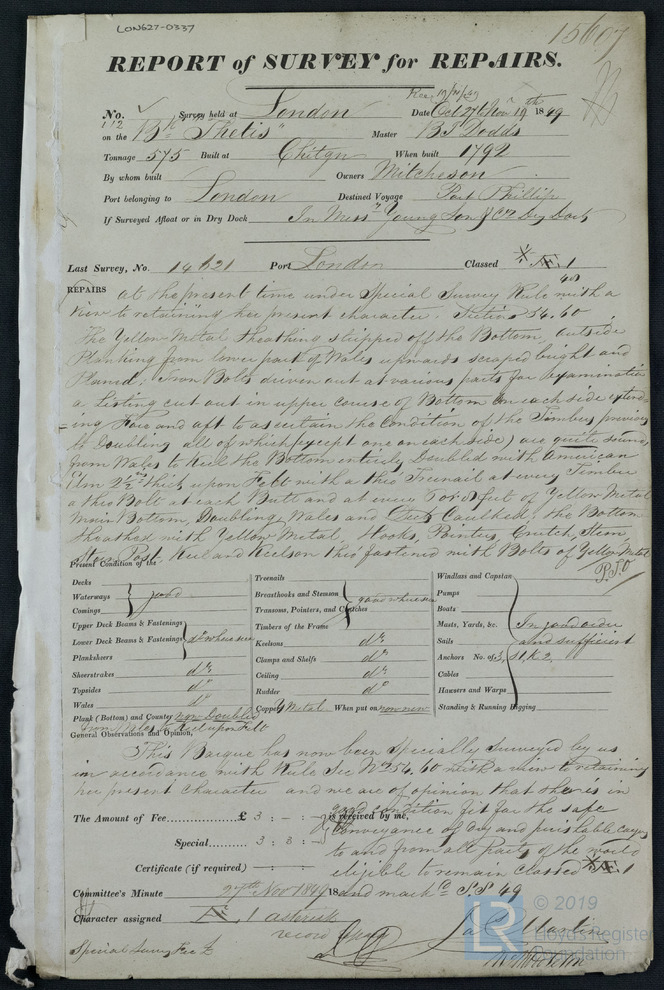 LON627-0337
15607
REPORT of SURVEY for REPAIRS.
Rec 19/11/49
No. 112 Survey held at London Date Oct 27 to Novr 19th 1849
on the Bk "Thetis" Master B S Dodds
Tonnage 575 Built at Chitgn When built 1792
By whom built Owners Mitcheson
Port belonging to London Destined Voyage Port Phillip
If Surveyed Afloat or in Dry Dock In Messrs Young Son & Co's Dry Dock
Last Survey, No. 14621 Port London Classed Æ 1
REPAIRS at the present time under Special Survey Rule with a
view to retaining her present character. Section 54.60
The Yellow Metal Sheathing stripped off the Bottom, outside
Planking from lower part of Wales upwards scraped bright and
Planed; Iron Bolts driven out at various parts for examination
a Listing cut out in upper course of Bottom on each side extend
ing Fore and aft to ascertain the Condition of the Timbers previous
to Doubling all of which (except one on each side) are quite sound
from Wales to Keel the Bottom entirely Doubled with American
Elm 2½ thick upon Felt with a thro Treenail at every Timber
a thro Bolt at each Butt and at every 7 or 8 feet of Yellow Metal
Main Bottom, Doubling, Wales and Deck Caulked, the Bottom
Sheathed with Yellow Metal, Hooks, Pointers, Crutch, Stem,
Stern Post, Keel and Keelson thro fastened with Bolts of Yellow Metal
P.T.O
Present Condition of the
Decks
Waterways good
Comings
Upper Deck Beams & Fastenings
Lower Deck Beams & Fastenings do where seen
Planksheers
Sheerstrakes do
Topsides do
Wales do
Plank (Bottom) and Counter now Doubled
from Wales to Keel upon Felt
Treenails
Breasthooks and Stemson
Transoms, Pointers, and Crutches good where seen
Timbers of the Frame
Keelsons do
Clamps and Shelfs do
Ceiling do
Rudder do
Copper Y Metal When put on now new
Windlass and Capstan
Pumps
Boats
Masts, Yards, &c. In good order
Sails and sufficient
Anchors No. of 3, S1, K2
Cables
Hawsers and Warps
Standing & Running Rigging
General Observations and Opinion,
This Barque has now been Specially Surveyed by us
in accordance with Rule Sec No 254.60 with a view to retaining
her present Character and we are of opinion that she is in
good condition fit for the safe
The Amount of Fee £ 3 : - : - is received by me,
conveyance of dry and perishable cargoes
Special 3 : 3 : -
to and from all Parts of the world
Certificate (if required)
eligible to remain Classed Æ 1
Committee's Minute 27th Nov 1849 18 and mark'd SS 49
Character assigned Æ 1 asterisk
record
Jas Martin
Special Survey Fee £
© 2019
LR
Lloyd's Register
Foundation